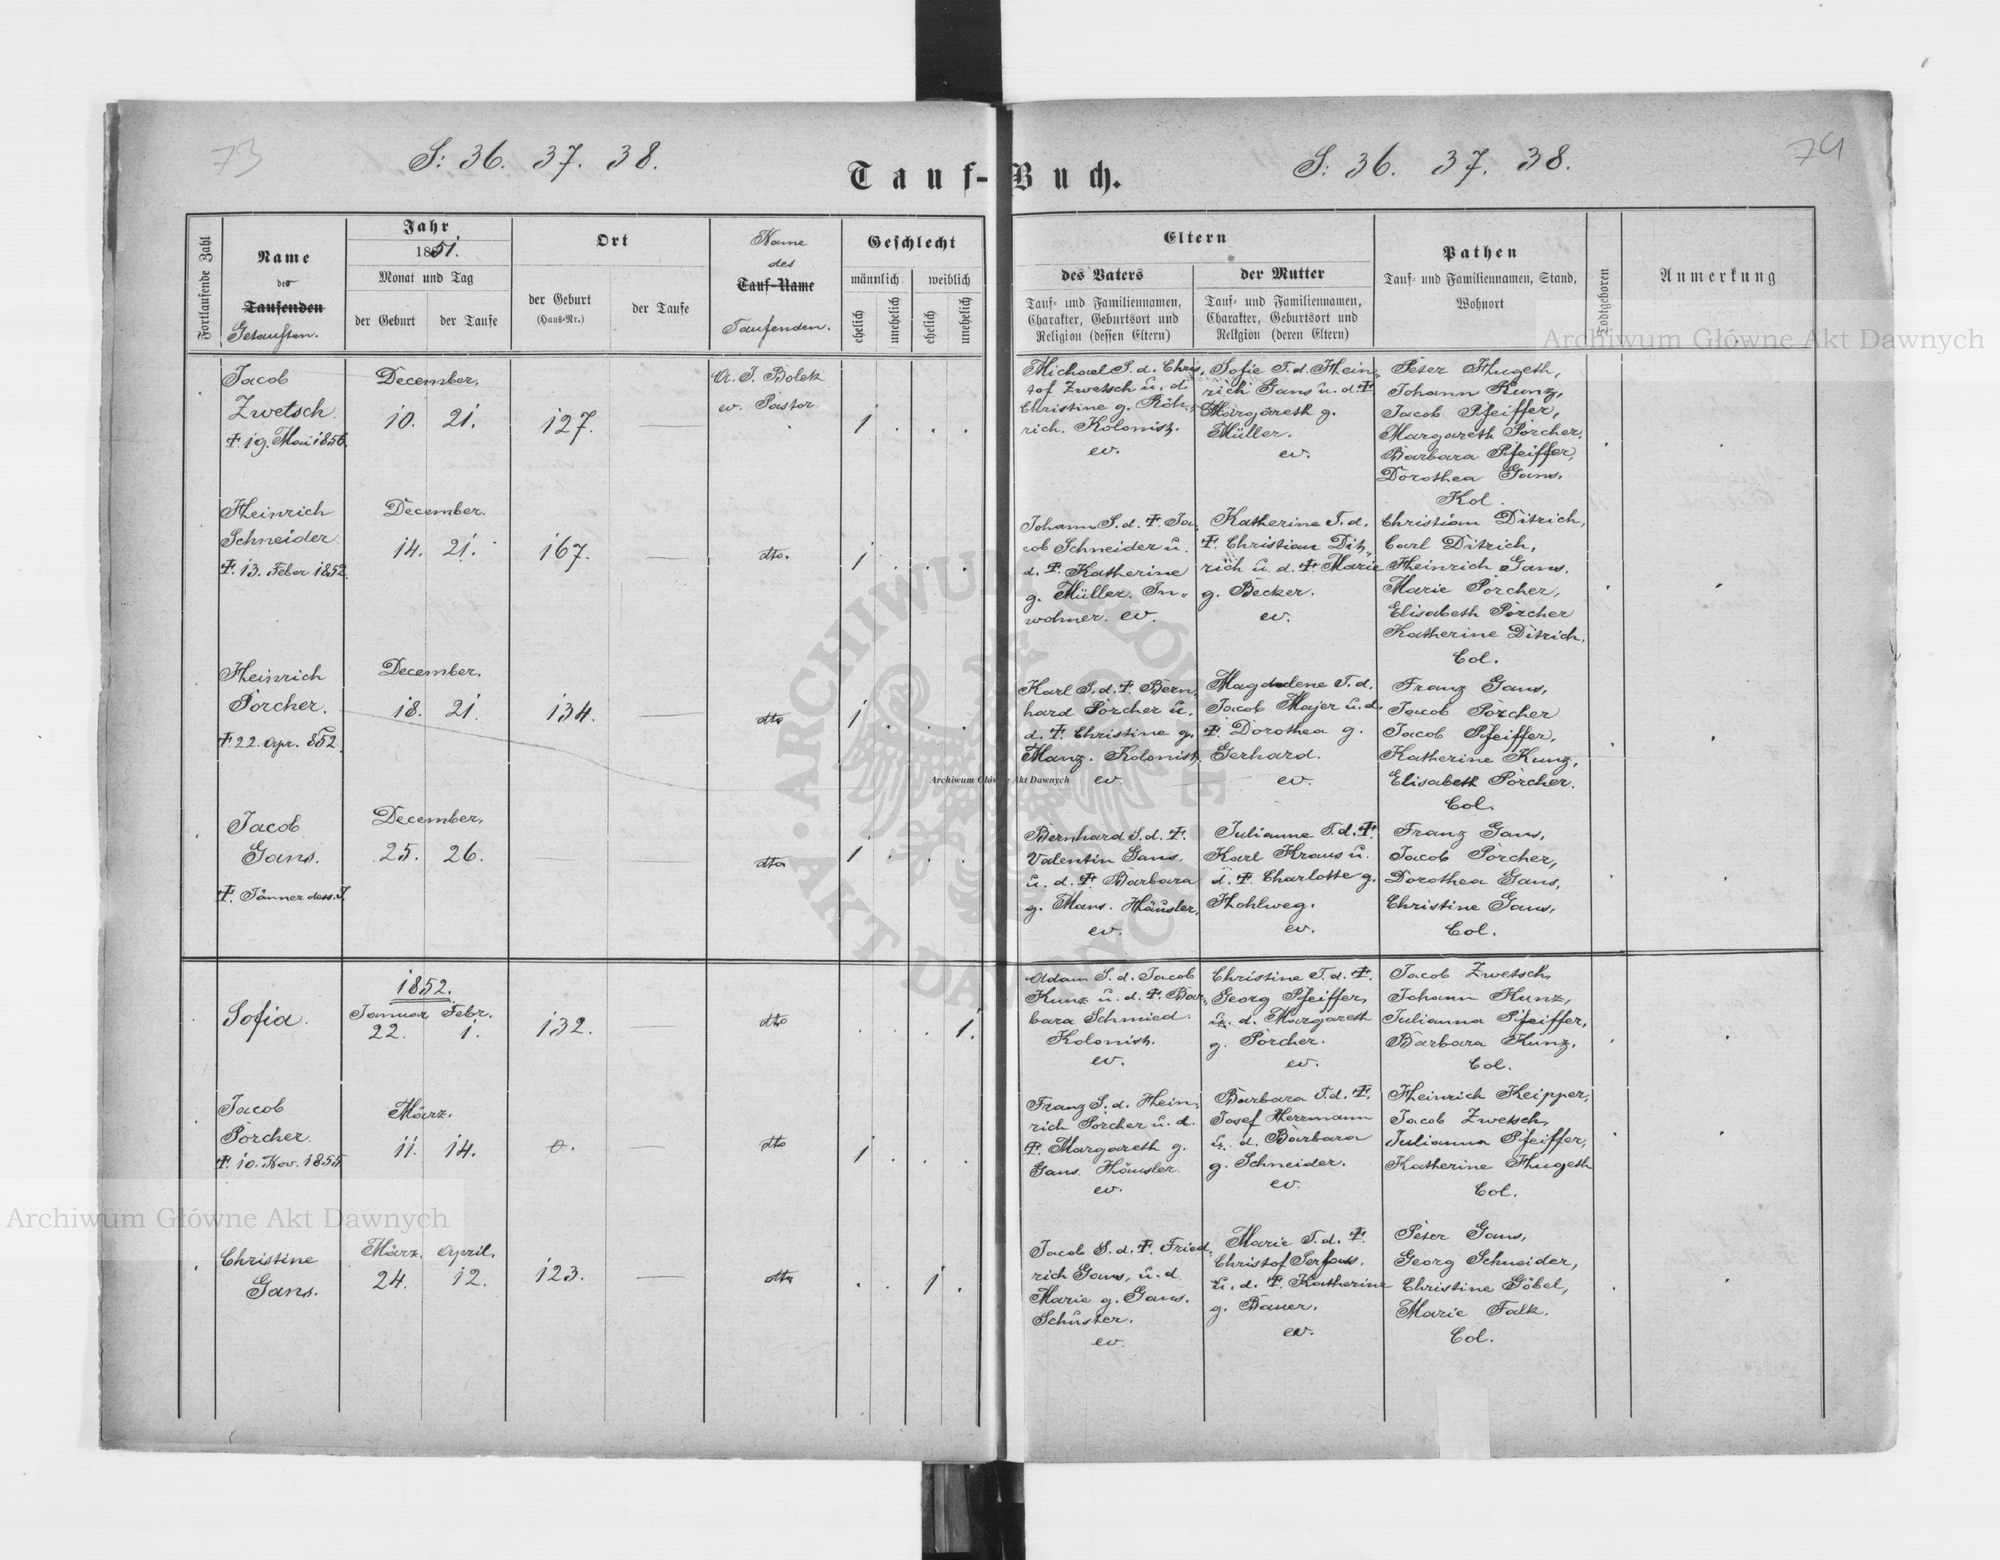 73
S: 36. 37. 38.
Tauf-Buch.
S: 36. 37. 38.
74
Fortlaufende Zahl
Name
der
Taufenden
Getauften.
Jahr
1851.
Monat und Tag
der Geburt
der Taufe
Ort
der Geburt
(Haus-Nr.)
der Taufe
Name
des
Tauf-Name
Taufenden.
Geschlecht
männlich
weiblich
ehelich
unehelich
ehelich
unehelich
Eltern
des Vaters
Tauf- und Familiennamen,
Charakter, Geburtsort und
Religion (dessen Eltern)
der Mutter
Tauf- und Familiennamen,
Charakter, Geburtsort und
Religion (deren Eltern)
Pathen
Tauf- und Familiennamen, Stand,
Wohnort
Todtgeboren
Anmerkung
Jacob
Zwetsch.
†. 19. Mai 1856.
December.
10. 21.
127.
A. J. Bolek
ev. Pastor
1
Michael S. d. Chris,
tof Zwetsch u. d.
Christine g. Röh,
rich. Kolonist.
ev.
Sofie T. d. Hein,
rich Gans u. d. †.
Margareth g.
Müller.
ev.
Peter Hugeth,
Johann Kunz,
Jacob Pfeiffer,
Margareth Porcher,
Barbara Pfeiffer,
Dorothea Gans.
Kol.
Heinrich
Schneider.
†. 13. Feber 1852.
December.
14. 21.
167.
dto.
1
Johann S. d. †. Ja,
cob Schneider u.
d. †. Katherine
g. Müller. In,,
wohner. ev.
Katherine T. d.
†. Christian Dit,,
rich u. d. †. Marie
g. Becker.
ev.
Christian Ditrich,
Carl Ditrich,
Heinrich Gans.
Marie Porcher,
Elisabeth Porcher
Katherine Ditrich.
Col.
Heinrich
Porcher.
†. 22. Apr. 852.
December.
18. 21.
134.
dto
1
Karl S. d. †. Bern,
hard Porcher u.
d. †. Christine g.
Manz. Kolonist.
ev
Magdalene T. d.
Jacob Majer u. d.
†. Dorothea g.
Gerhard.
ev.
Franz Gans,
Jacob Porcher
Jacob Pfeiffer,
Katherine Kunz,
Elisabeth Porcher.
Col.
Jacob
Gans.
†. Jänner dess. J.
December.
25. 26.
dto
1
Bernhard S. d. †.
Valentin Gans.
u. d. †. Barbara
g. Mans. Häusler.
ev.
Julianne T. d. †.
Karl Kraus u.
d. †. Charlotte g.
Hohlweg.
ev.
Franz Gans,
Jacob Porcher,
Dorothea Gans,
Christine Gans,
Col.
Sofia.
1852.
Januar Febr.
22. 1.
132.
dto
1.
Adam S. d. Jacob
Kunz u. d. †. Bar,
bara Schmied.
Kolonist.
ev.
Christine T. d. †.
Georg Pfeiffer,
u. d. Margareth
g. Porcher.
ev.
Jacob Zwetsch,
Johann Kunz,
Julianna Pfeiffer,
Barbara Kunz.
Col.
Jacob
Porcher.
†. 10. Nov. 1855.
März.
11. 14.
0.
dto
1
Franz S. d. Hein,
rich Porcher u. d.
†. Margareth g.
Gans. Häusler.
ev.
Barbara T. d. †.
Josef Herrmann
u. d. Barbara
g. Schneider.
ev.
Heinrich Keipper,
Jacob Zwetsch,
Julianna Pfeiffer,
Katherine Hugeth
Col.
Christine
Gans.
März. April.
24. 12.
123.
dto
1
Jacob S. d. †. Fried,
rich Gans, u. d.
Marie g. Gans.
Schuster.
ev.
Marie T. d. †.
Christof Serfass.
u. d. †. Katherine
g. Bauer.
ev.
Peter Gans,
Georg Schneider,
Christine Göbel,
Marie Falk.
Col.
Archiwum Główne Akt Dawnych
Archiwum Główne Akt Dawnych
Archiwum Główne Akt Dawnych